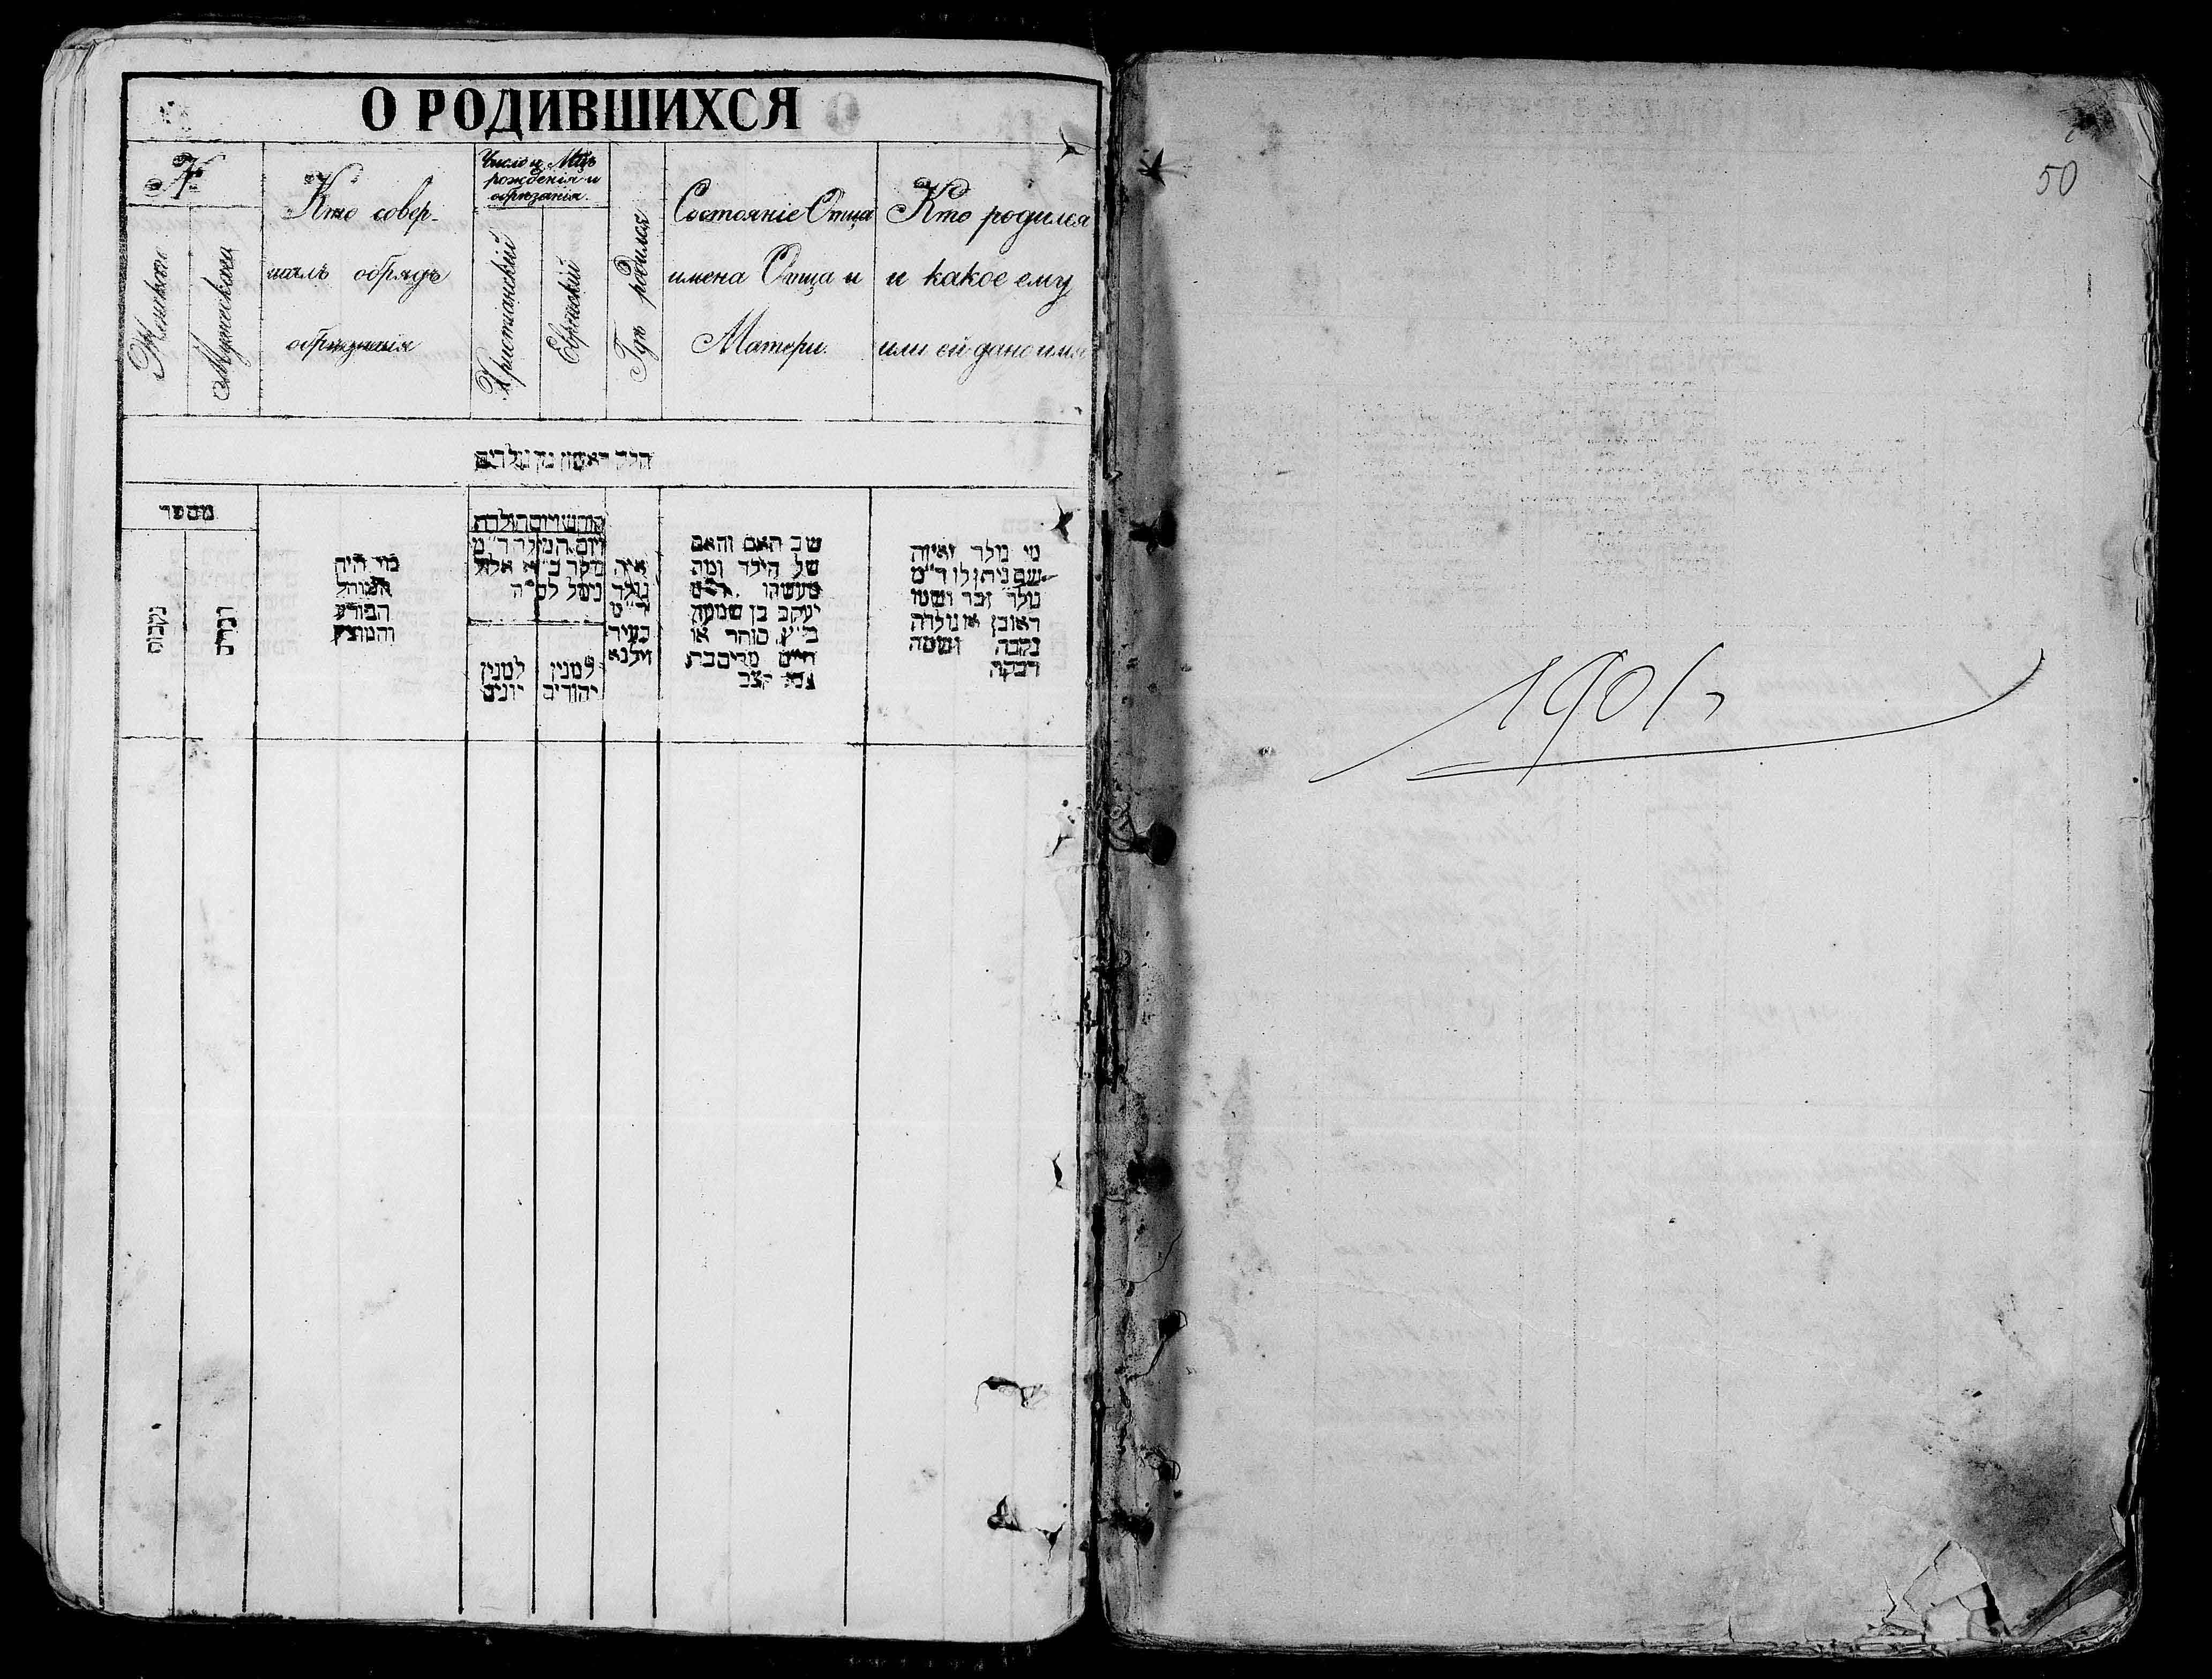 О РОДИВШИХСЯ
№
Женскаго
Мужескаго
Кто совер-
шалъ обрядъ
обрѣзанія
Число и Мѣць
рожденія и
обрѣзанія.
Христіанскій
Еврейскій
Гдѣ родился
Состояніе Отца
имена Отца и
Матери.
Кто родился
и какое ему
или ей дано имя
חלק ראשון מן נולדים
מספר
נקבות
זכרים
מי היה
המוהל
הפורע
והמוצץ
חודש ויום הולדת
ויום המילה ד״מ
למנין
יונים
למנין
יהודים
איה
נולד
ד״מ
בעיר
ווילנא
שב האם והאם
של הילד ומה
מעשהו
יעקב בן שמעון
כ״ץ סוחר או
חיים
קצב
מי נולד ואיזה
שם ניתן לו ד״מ
נולד זכר ושמו
ראובן או נולדה
נקבה ושמה
רבקה
50
1901